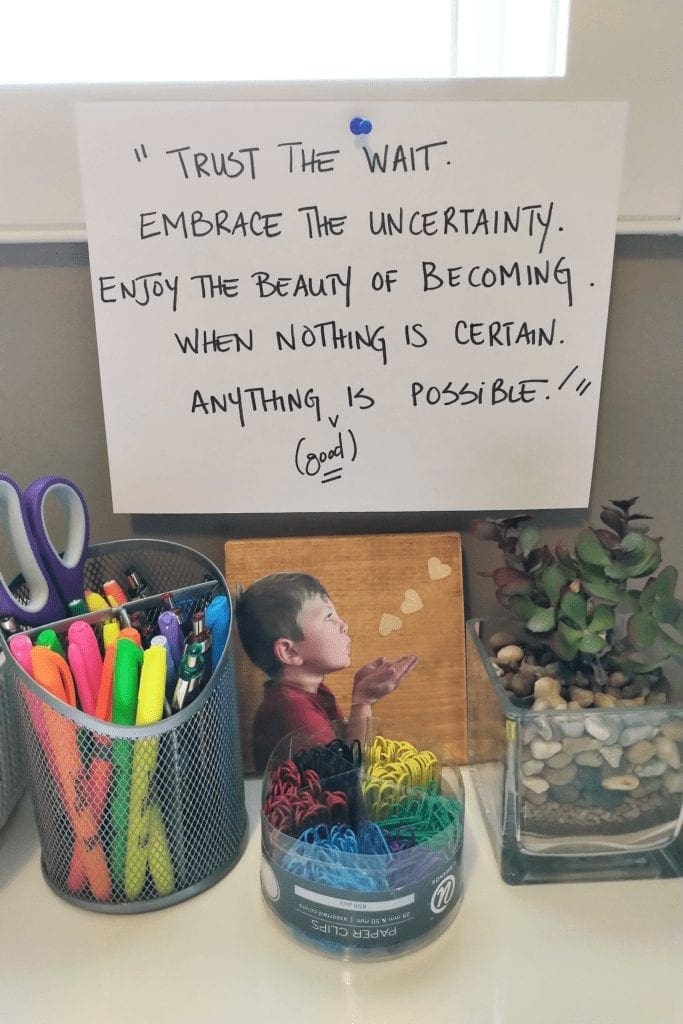 " TRUST THE WAIT.
EMBRACE THE UNCERTAINTY.
ENJOY THE BEAUTY OF BECOMING.
WHEN NOTHING IS CERTAIN.
ANYTHING ˅ IS POSSIBLE.!"
(good)
PAPER CLIPS
28 mm & 50 mm | assorted colors
450 pcs